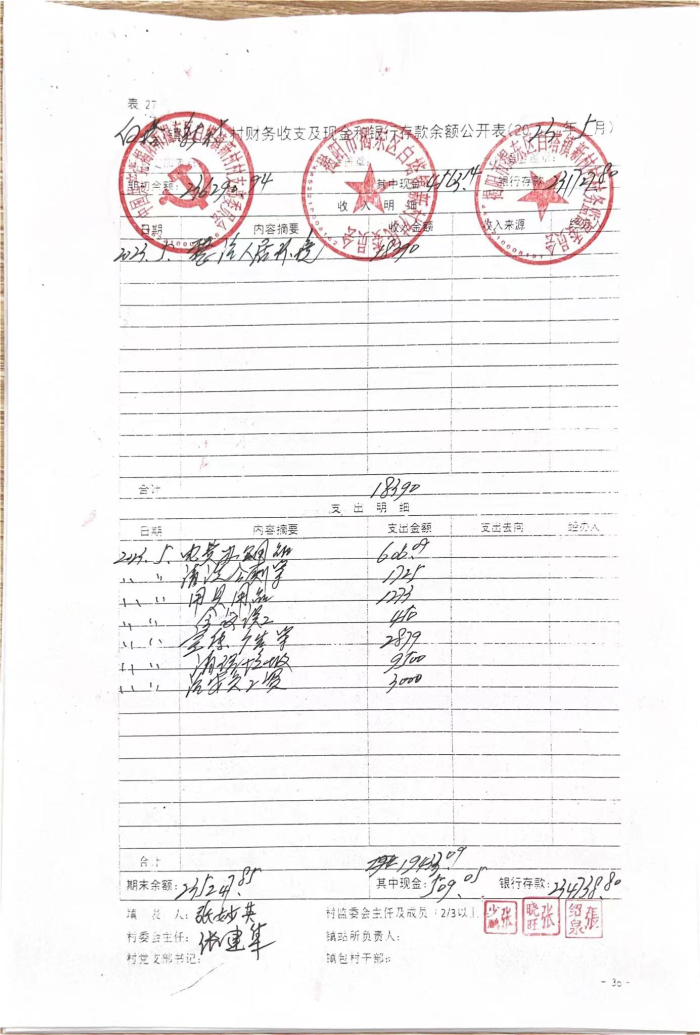 表 27
白塔 镇 新村 村财务收支及现金和银行存款余额公开表(2023年5月)
期初金额:236290.94 其中现金:4563.14 银行存款:231727.80
收 入 明 细
日期 内容摘要 收入金额 收入来源 经办人
2023.5. 整治人居环境 18390
合计 18390
支 出 明 细
日期 内容摘要 支出金额 支出去向 经办人
2023.5. 电费办公用品 606.09
〃 〃 清洁 1725
〃 〃 用具用品 1273
〃 〃 会议误工 450
〃 〃 2879
〃 〃 清理垃圾 9500
〃 〃 治安员工资 3000
合计 19433.09
期末余额:235247.85 其中现金:509.05 银行存款:234738.80
填 表 人:张妙英 村监委会主任及成员(2/3以上)
村委会主任:张建华 镇站所负责人:
村党支部书记: 镇包村干部:
- 36 -